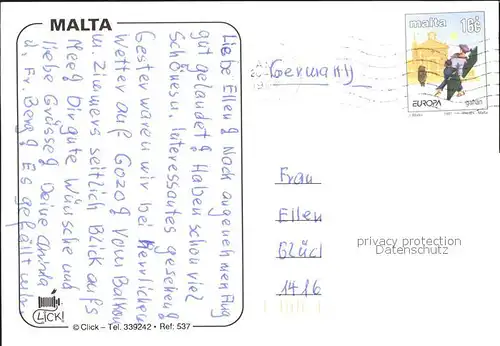 MALTA
Liebe Ellen! Nach angenehmen Flug
gut gelandet! Haben schon viel
Schönes u. Interessantes gesehen!
Gestern waren wir bei herrlichem
Wetter auf Gozo! Vom Balkon
u. Zimmer seitlich Blick aufs
Meer! Dir gute Wünsche und
liebe Grüsse! Deine
u. Fr. Berg! Es gefällt uns.
CLICK!
© Click – Tel. 339242 • Ref: 537
Germany
malta 16c
EUROPA
Frau
Ellen
Glück
1416
privacy protection
Datenschutz